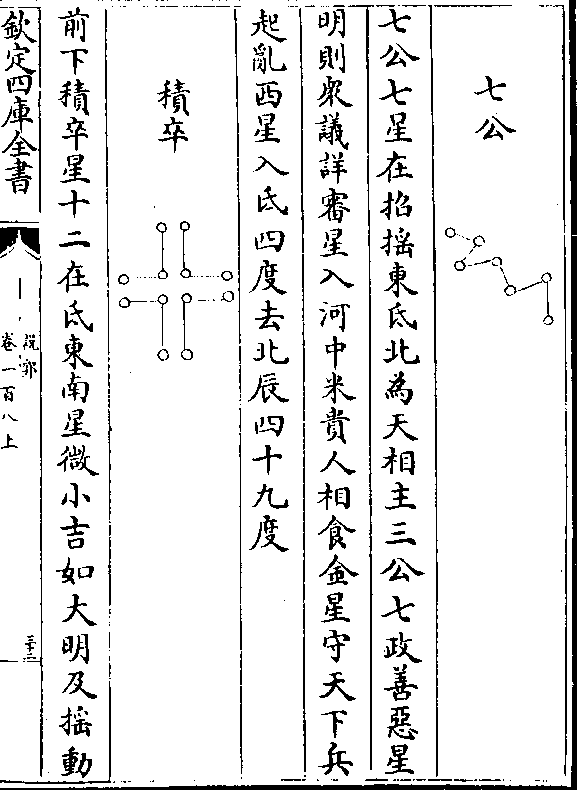 七公
七公七星在招揺東氐北為天相主三公七政善惡星
明則衆議詳審星入河中米貴人相食金星守天下兵
起亂西星入氐四度去北辰四十九度
積卒
前下積卒星十二在氐東南星微小吉如大明及揺動
欽定四庫全書
說郛
卷一百八上
三十二